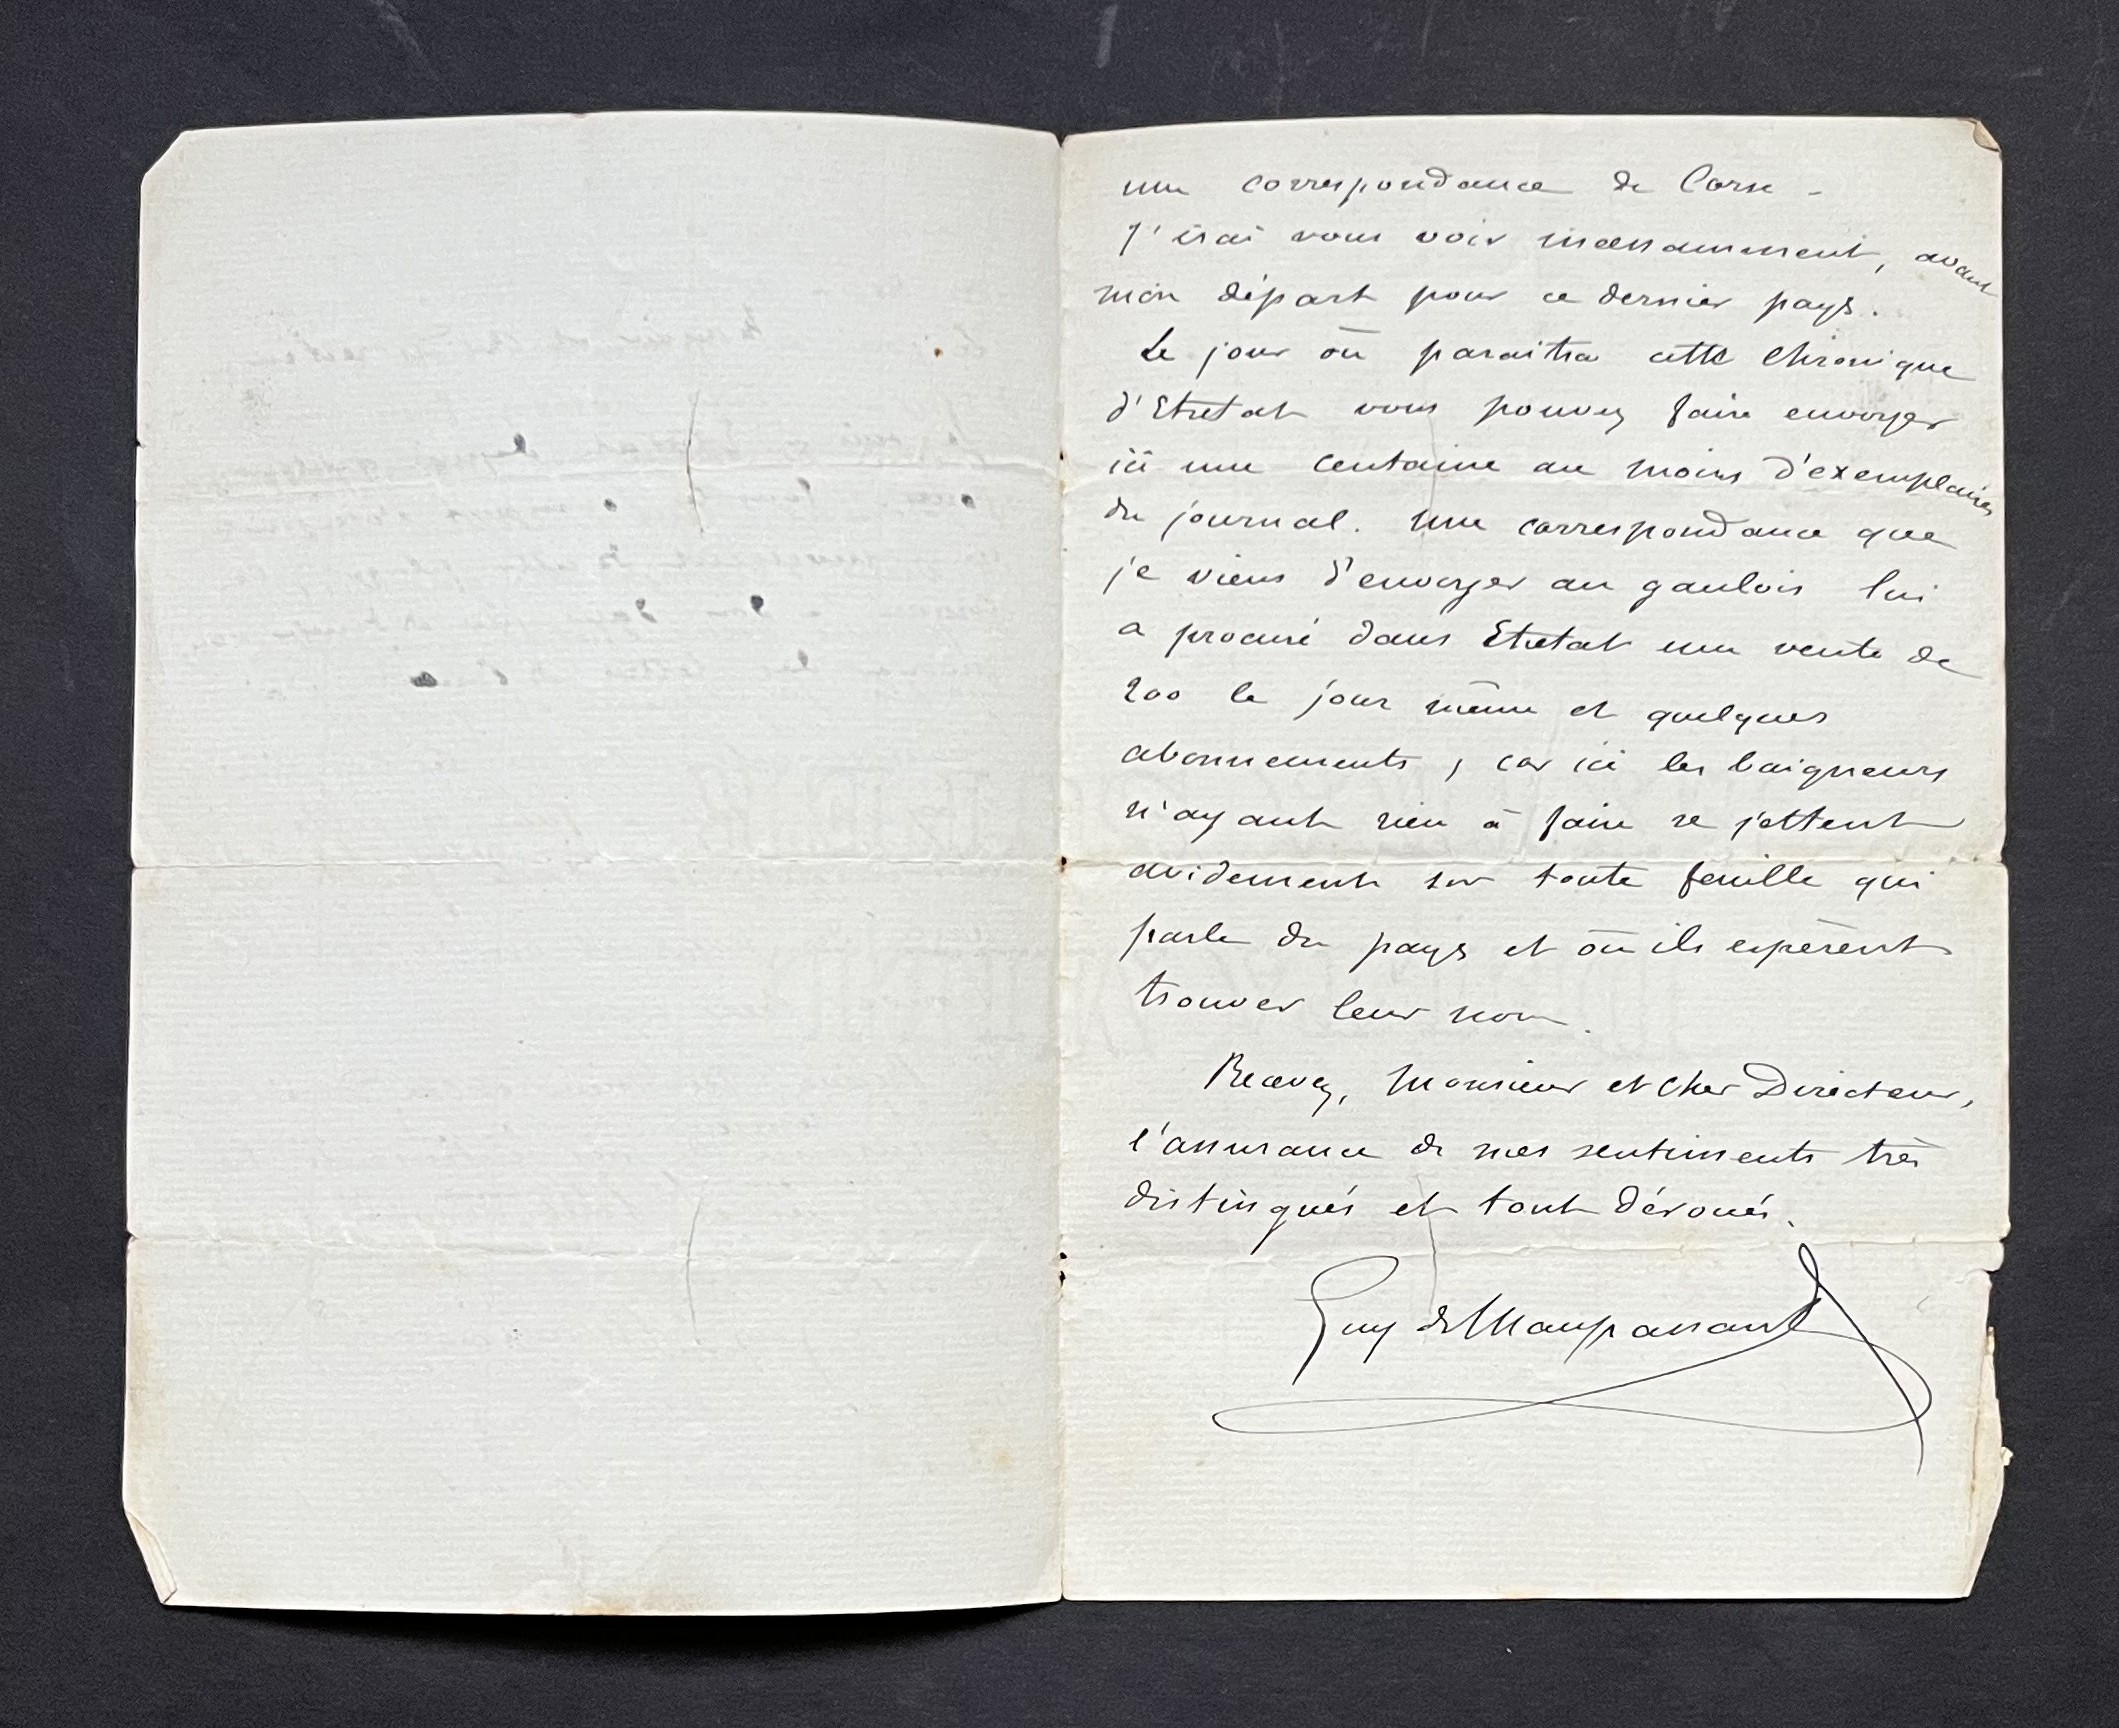 une correspondance de Corse -
J'irai vous voir incessamment, avant
mon départ pour ce dernier pays.
Le jour où paraitra cette chronique
d'Etretat vous pouvez faire envoyer
ici une centaine au moins d'exemplaires
du journal. Une correspondance que
je viens d'envoyer au gaulois lui
a procuré dans Etretat une vente de
200 le jour même et quelques
abonnements, car ici les baigneurs
n'ayant rien à faire se jettent
avidement sur toute feuille qui
parle du pays et où ils espèrent
trouver leur nom.
Recevez, Monsieur et cher Directeur,
l'assurance de mes sentiments très
distingués et tout dévoués.
Guy de Maupassant